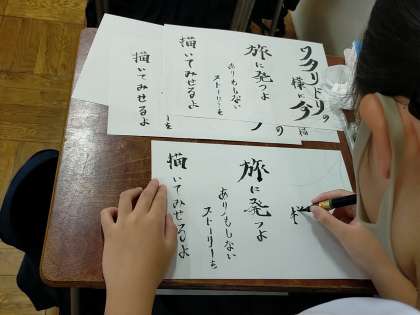 ワタリドリの
様に今
旅に発つよ
ありもしない
ストーリーを
描いてみせるよ
描いてみせるよ
旅に発つよ
ありもしない
ストーリーを
描いてみせるよ